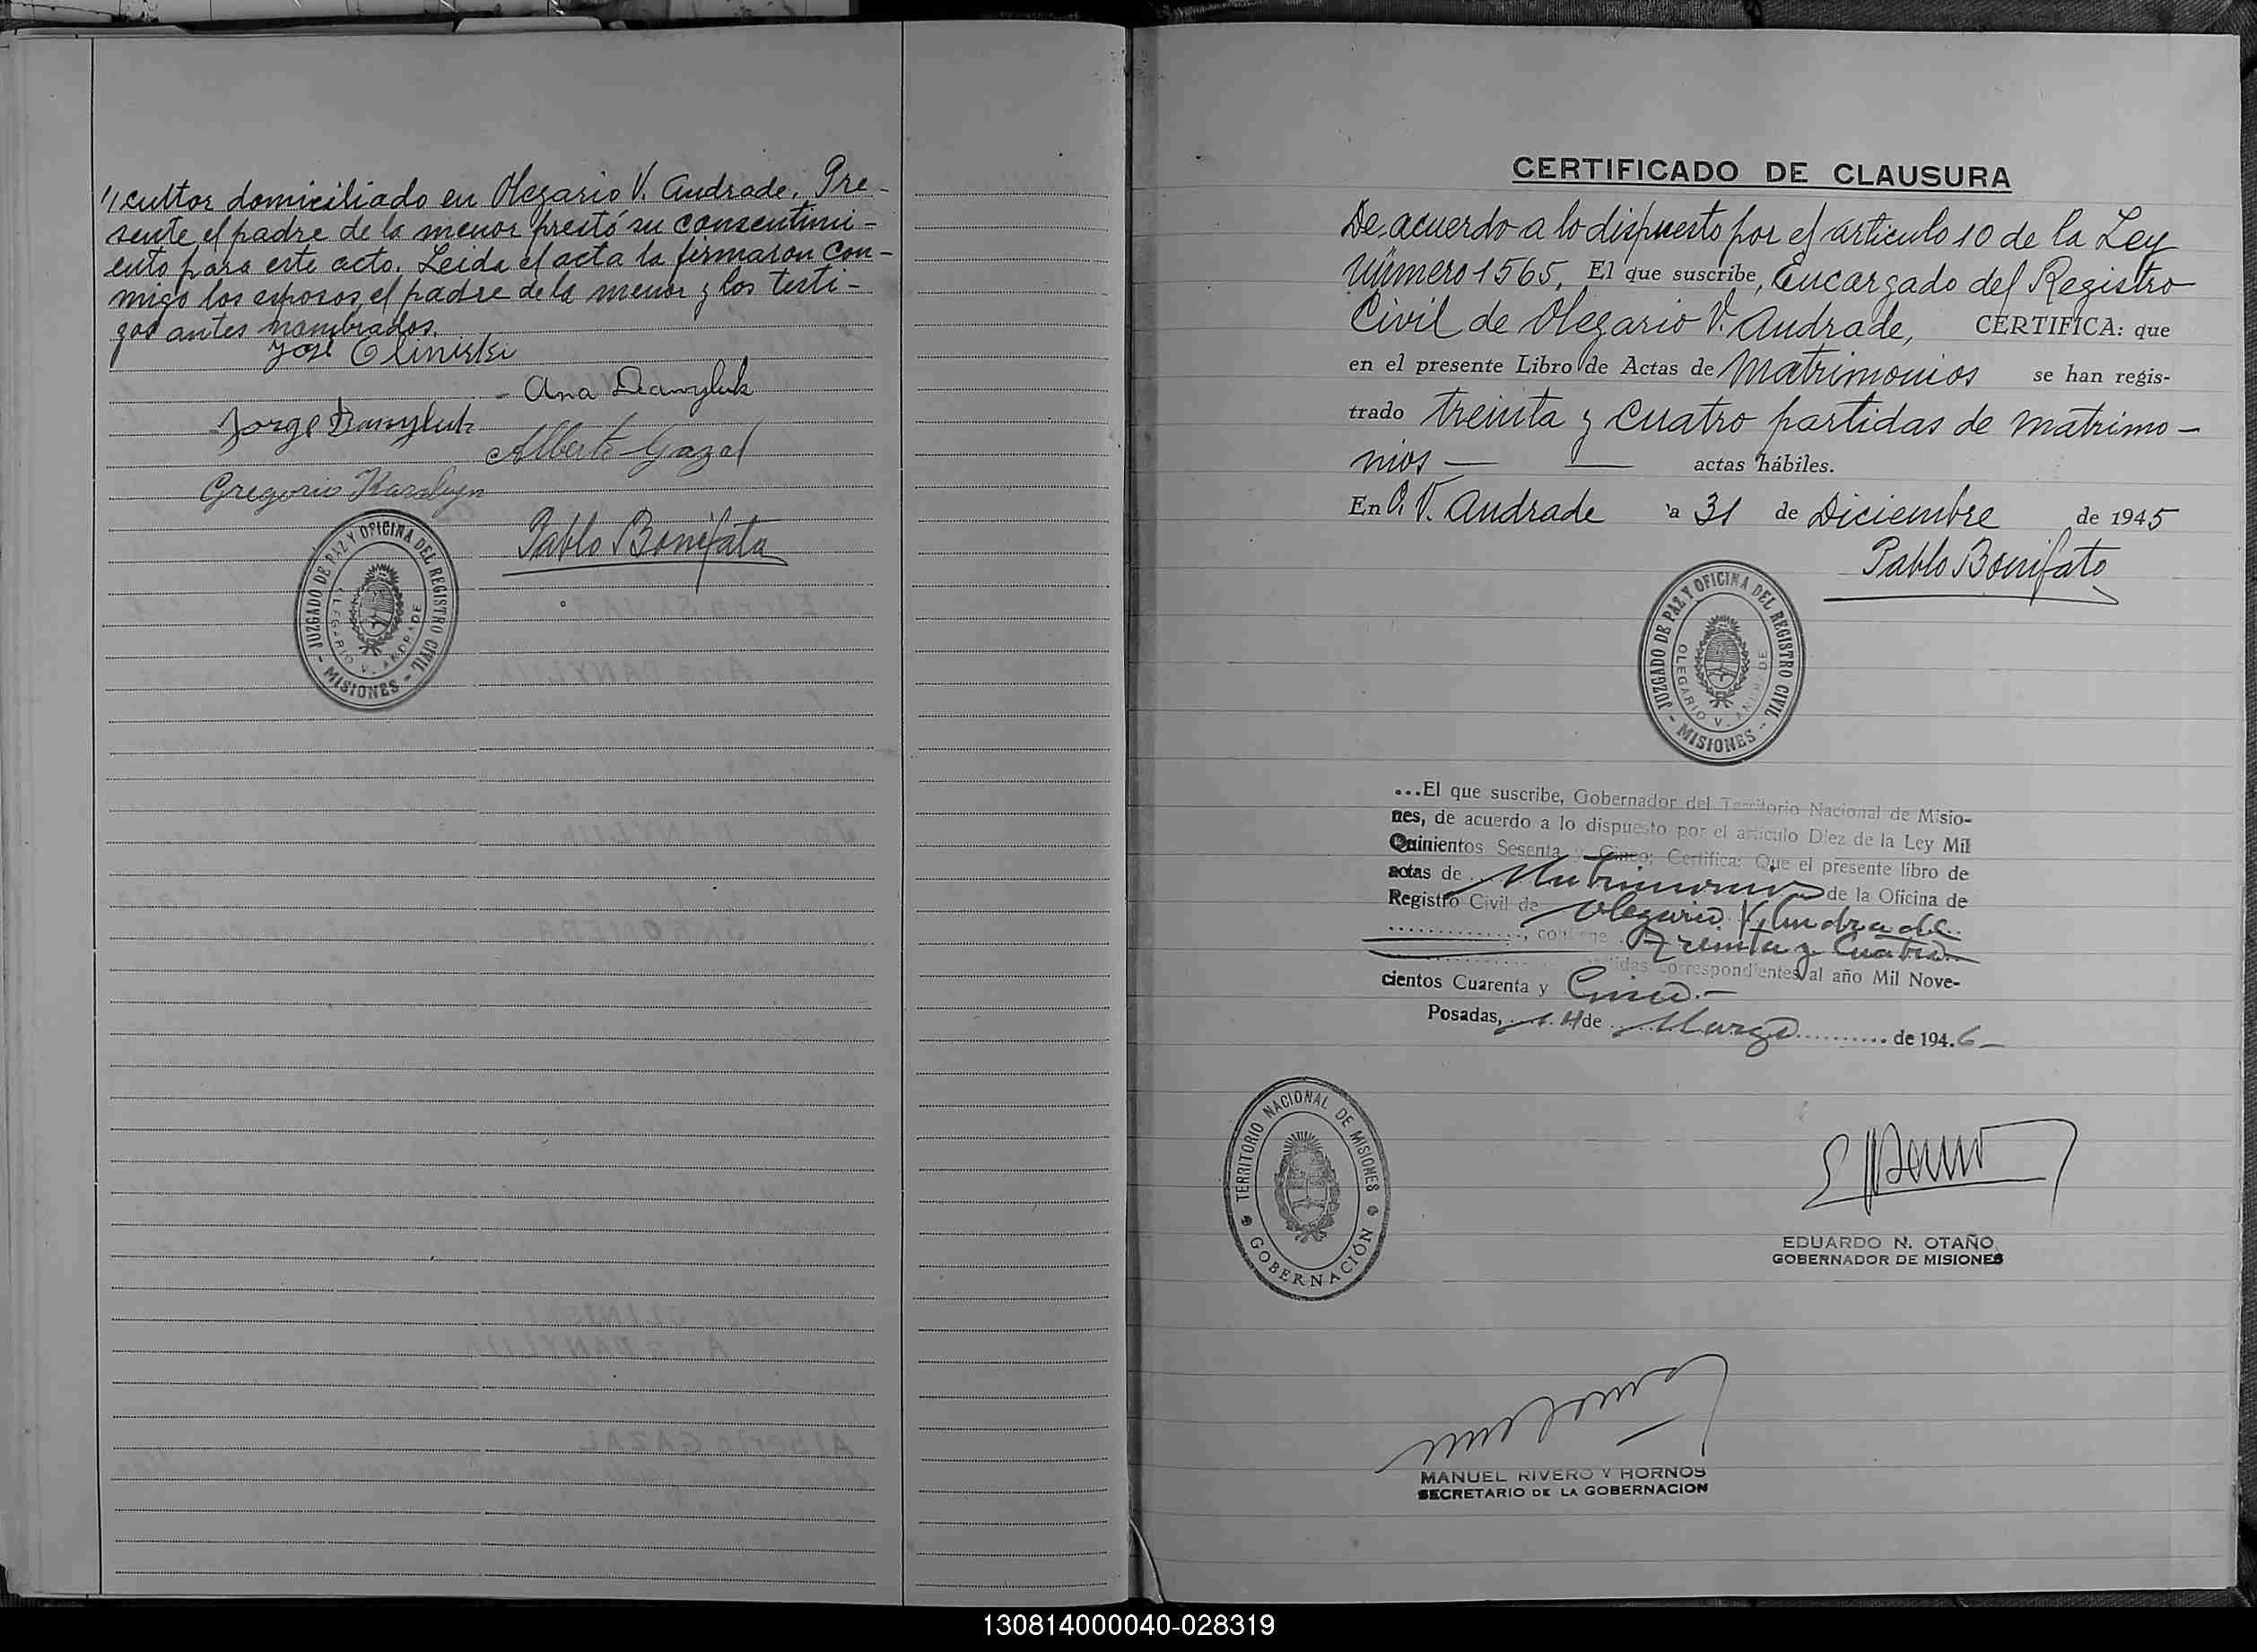 "cultor domiciliado en Olegario V. Andrade. Pre-
sente el padre de la menor prestó su consentimi-
ento para este acto. Leida el acta la firmaron con-
migo los esposos, el padre de la menor y los testi-
gos antes nombrados.
José Oliniski
- Ana Danyluk
Jorge Danyluk
Alberto Gazal
Gregorio
Pablo Bonifato
JUZGADO DE PAZ Y OFICINA DEL REGISTRO CIVIL
OLEGARIO V. ANDRADE
- MISIONES -
CERTIFICADO DE CLAUSURA
De acuerdo a lo dispuesto por el artículo 10 de la Ley
número 1565, El que suscribe, Encargado del Registro
Civil de Olegario V. Andrade, CERTIFICA: que
en el presente Libro de Actas de Matrimonios se han regis-
trado treinta y cuatro partidas de matrimo-
nios — — actas hábiles.
En O. V. Andrade a 31 de Diciembre de 1945
Pablo Bonifato
JUZGADO DE PAZ Y OFICINA DEL REGISTRO CIVIL
OLEGARIO V. ANDRADE
- MISIONES -
...El que suscribe, Gobernador del Territorio Nacional de Misio-
nes, de acuerdo a lo dispuesto por el artículo Diez de la Ley Mil
Quinientos Sesenta y Cinco; Certifica: Que el presente libro de
actas de Matrimonios de la Oficina de
Registro Civil de Olegario V. Andrade
.............., contiene Treinta y Cuatro
partidas correspondientes al año Mil Nove-
cientos Cuarenta y Cinco.-
Posadas, 14 de Marzo .......... de 194.6-
TERRITORIO NACIONAL DE MISIONES
GOBERNACIÓN
EDUARDO N. OTAÑO
GOBERNADOR DE MISIONES
MANUEL RIVERO Y HORNOS
SECRETARIO DE LA GOBERNACION
130814000040-028319